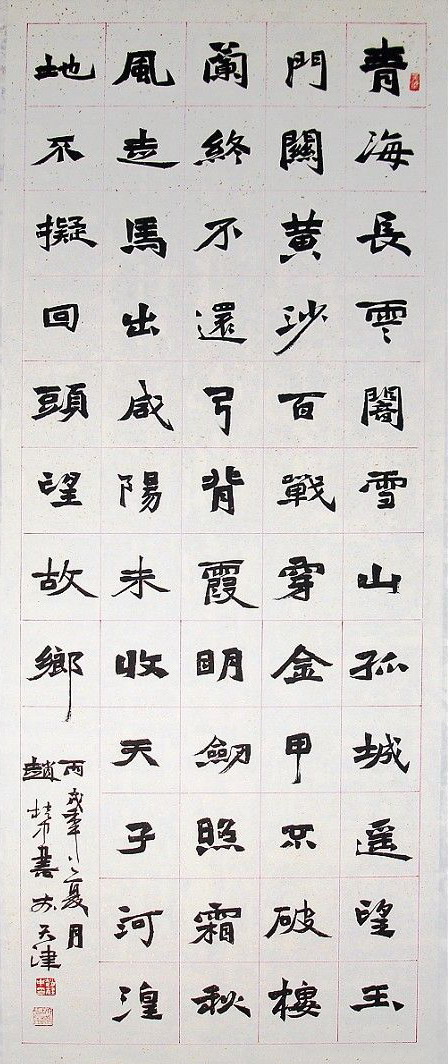 青海長雲闇雪山孤城遥望玉
門關黃沙百戰穿金甲不破樓
蘭終不還弓背霞明劒照霜秋
風走馬出咸陽未收天子河湟
地不擬回頭望故鄉
丙戌年之夏月
趙書於天津